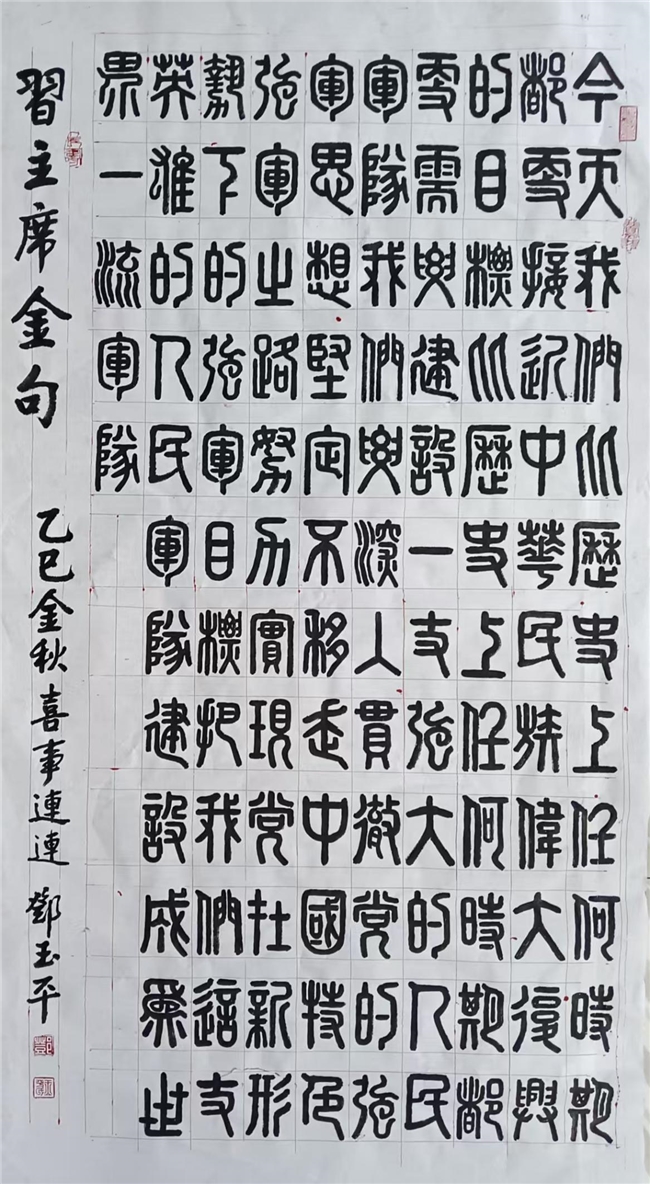 今天我們比歷史上任何時期
都更接近中華民族偉大復興
的目標比歷史上任何時期都
更需要建設一支強大的人民
軍隊我們要深入貫徹党的強
軍思想堅定不移走中國特色
強軍之路努力實現党在新形
勢下的強軍目標把我們這支
英雄的人民軍隊建設成為世
界一流軍隊
習主席金句 乙巳金秋喜事連連 鄧玉平